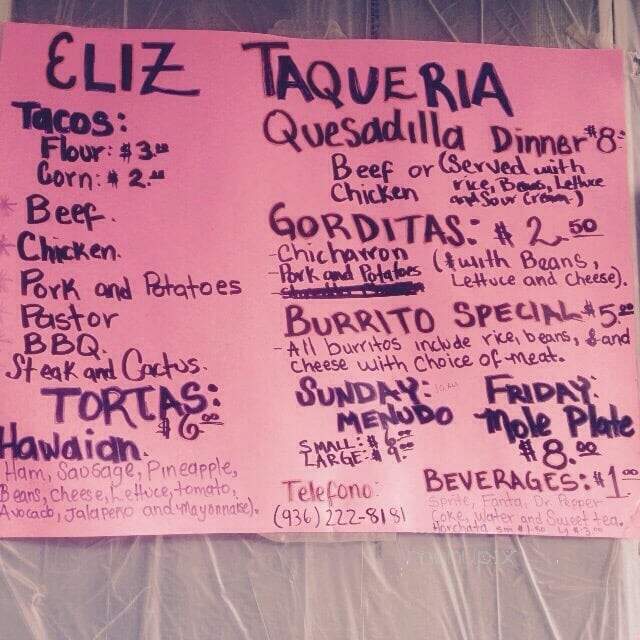 ELIZ TAQUERIA
Tacos:
Flour: $3.00
Corn: $2.00
Beef.
Chicken.
Pork and Potatoes
Pastor
BBQ.
Steak and Cactus.
TORTAS:
$6.00
Hawaiian.
Ham, Sausage, Pineapple,
Beans, Cheese, Lettuce, tomato,
Avocado, Jalapeno and Mayonnaise).
Quesadilla Dinner $8.
Beef or
Chicken
(Served with
rice, Beans, Lettuce
and Sour Cream.)
GORDITAS: $2.50
- Chicharron
- Pork and Potatoes
(with Beans,
Lettuce and Cheese).
BURRITO SPECIAL $5.00
- All burritos include rice, beans, and
cheese with Choice of meat.
SUNDAY:
MENUDO
SMALL: $6.00
LARGE: $9.00
FRIDAY:
Mole Plate
$8.00
Telefono:
(936) 222-8181
BEVERAGES: $1.00
Sprite, Fanta, Dr. Pepper
Coke, Water and Sweet tea.
Horchata